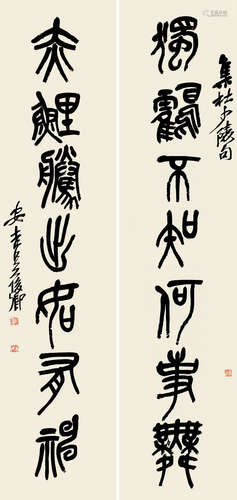 集杜少陵句
獨鶴不知何事舞
赤鯉騰出如有神
安吉吳俊卿